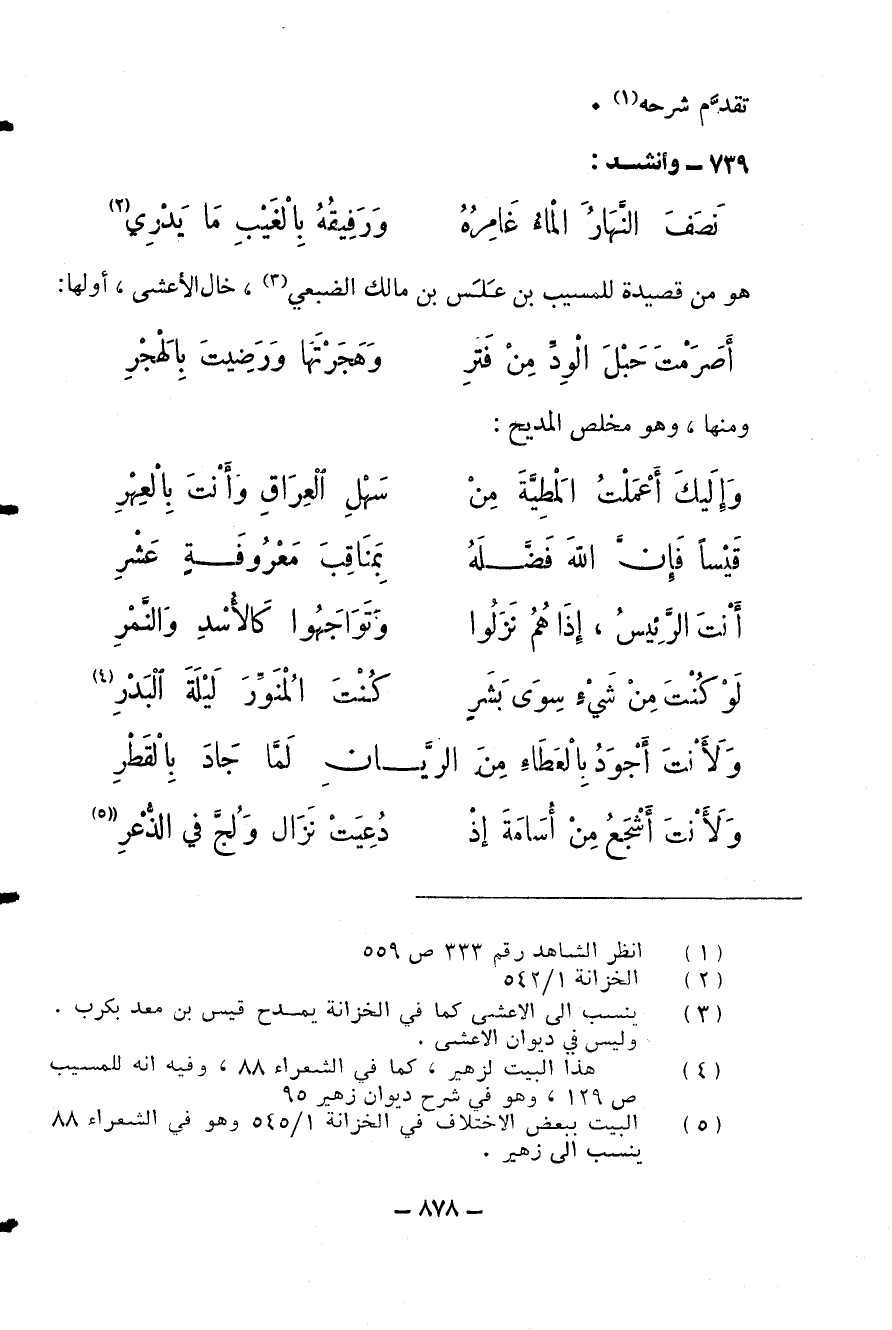 تقدَّم شرحه(١) ٠
٧٣٩ ــ وأنشــد :
نَصَفَ النَّهَارُ الْمَاءُ غَامِرُهُ وَرَفِيقُهُ بِالْغَيْبِ مَا يَدْرِي(٢)
هو من قصيدة للمسيب بن عَلَس بن مالك الضبعي(٣) ، خال الأعشى ، أولها:
أَصَرَمْتَ حَبْلَ الْوِدِّ مِنْ فَتَرِ وَهَجَرْتَهَا وَرَضِيتَ بِالْهَجْرِ
ومنها ، وهو مخلص المديح :
وَإِلَيكَ أَعْمَلْتُ الْمَطِيَّةَ مِنْ سَهْلِ الْعِرَاقِ وَأَنْتَ بِالْعِهْرِ
قَيْساً فَإِنَّ اللهَ فَضَّــلَهُ بِمَنَاقِبَ مَعْرُوفَــةٍ عَشْرِ
أَنْتَ الرَّئِيسُ ، إِذَا هُمُ نَزَلُوا وَتَوَاجَهُوا كَالأُسْدِ وَالنَّمْرِ
لَوْ كُنْتَ مِنْ شَيْءٍ سِوَى بَشَرٍ كُنْتَ الْمُنَوِّرَ لَيْلَةَ الْبَدْرِ(٤)
وَلَأَنْتَ أَجْوَدُ بِالْعَطَاءِ مِنَ الرَّيَّــانِ لَمَّا جَادَ بِالْقَطْرِ
وَلَأَنْتَ أَشْجَعُ مِنْ أُسَامَةَ إِذْ دُعِيَتْ نَزَال وَلُجَّ في الذُّعْرِ(٥)
(١) انظر الشاهد رقم ٣٣٣ ص ٥٥٩
(٢) الخزانة ٥٤٢/١
(٣) ينسب الى الاعشى كما في الخزانة يمــدح قيس بن معد بكرب .
وليس في ديوان الاعشى .
(٤) هذا البيت لزهير ، كما في الشعراء ٨٨ ، وفيه انه للمسيب
ص ١٢٩ ، وهو في شرح ديوان زهير ٩٥
(٥) البيت ببعض الاختلاف في الخزانة ٥٤٥/١ وهو في الشعراء ٨٨
ينسب الى زهير .
ــ ٨٧٨ ــ